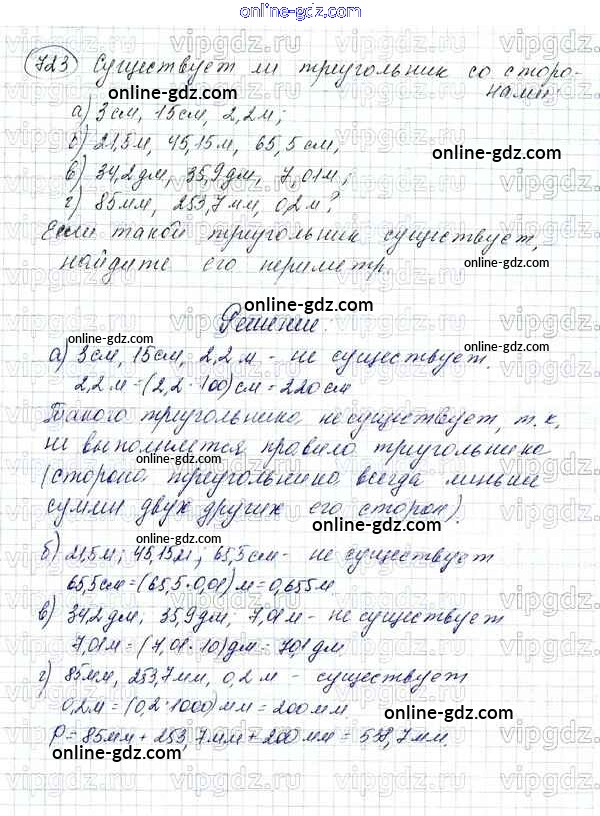 online-gdz.com
723 Существует ли треугольник со сторо-
нами:
а) 3см, 15см, 2,2м;
б) 21,5м, 45,15м, 65,5см,
online-gdz.com
в) 34,2дм, 35,9дм, 7,01м;
г) 85мм, 253,7мм, 0,2м?
Если такой треугольник существует,
найдите его периметр.
online-gdz.com
online-gdz.com
Решение.
online-gdz.com
online-gdz.com
а) 3см, 15см, 2,2м - не существует.
2,2м = (2,2·100)см = 220см
Такого треугольника не существует, т.к,
не выполняется правило треугольника
(сторона треугольника всегда меньше
суммы двух других его сторон).
online-gdz.com
б) 21,5м; 45,15м; 65,5см - не существует
65,5см = (65,5·0,01)м = 0,655м
в) 34,2дм, 35,9дм, 7,01м - не существует
7,01м = (7,01·10)дм = 70,1дм
г) 85мм, 253,7мм, 0,2м - существует
0,2м = (0,2·1000)мм = 200мм.
online-gdz.com
P = 85мм + 253,7мм + 200мм = 538,7мм.
online-gdz.com
online-gdz.com